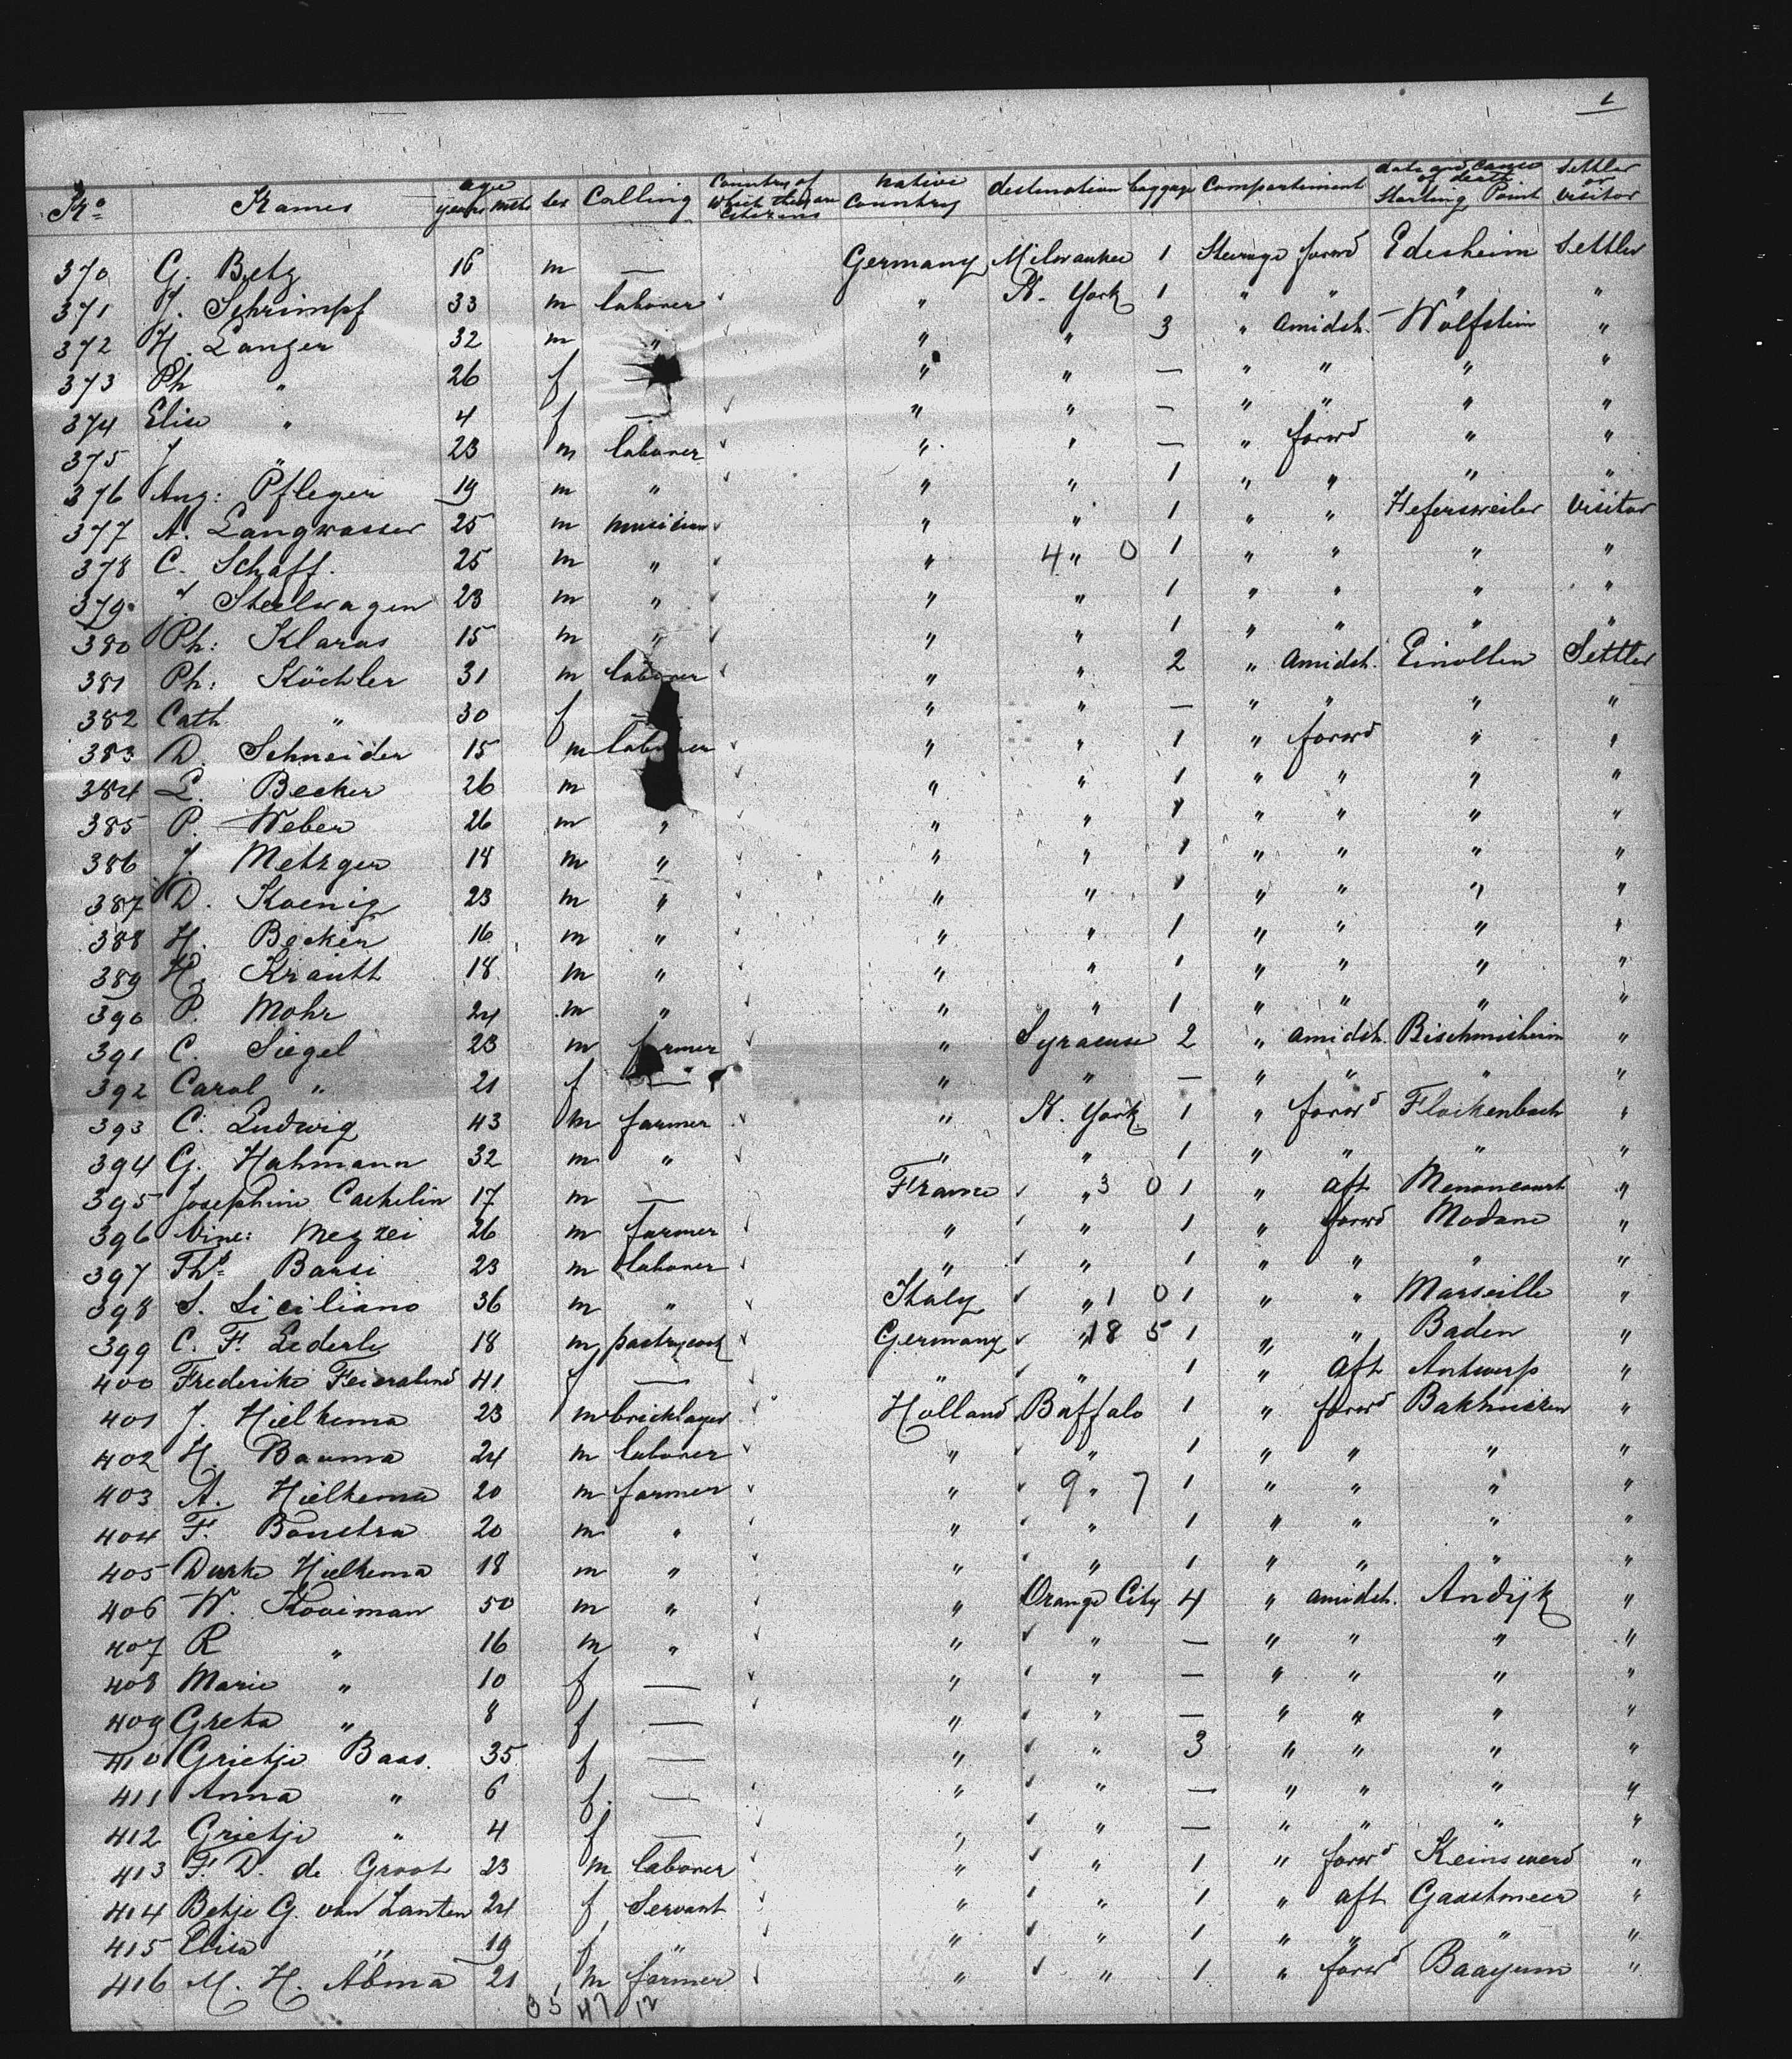 1
No Names age years mths sex Calling Country of which they are Citizens native Country destination baggage Compartiment date and cause of death Starting Point Settler or visitor
370 G. Betz 16 m — Germany Milwaukee 1 Steerage forwd Edesheim Settler
371 J. Schrimpf 33 m laborer " N. York 1 " " " "
372 H. Langer 32 m " " " 3 " Amidsh. Wolfstein "
373 Ph " 26 f — " " — " " " "
374 Elise " 4 f — " " — " " " "
375 J " 23 m laborer " " — " forwd " "
376 Aug: Pfleger 19 m " " " 1 " " " "
377 A. Langwasser 25 m musician " " 1 " " Hefersweiler Visitor
378 C. Schaff. 25 m " " 4 " 0 1 " " " "
379 J. Steelwagen 23 m " " " 1 " " " "
380 Ph: Klaras 15 m " " " 1 " " " "
381 Ph: Köchler 31 m laborer " " 2 " Amidsh. Einollen Settler
382 Cath " 30 f — " " — " " " "
383 D. Schneider 15 m laborer " " 1 " forwd " "
384 L. Becker 26 m " " 1 " " " "
385 P. Weber 26 m " " " 1 " " " "
386 J. Metzger 18 m " " " 1 " " " "
387 D. Koenig 23 m " " " 1 " " " "
388 H. Becker 16 m " " " 1 " " " "
389 H. Krauth 18 m " " " 1 " " " "
390 P. Mohr 24 m " " " 1 " " " "
391 C. Siegel 23 m farmer " Syracuse 2 " amidsh. Bischmisheim "
392 Carol " 21 f — " " — " " " "
393 C. Ludwig 43 m farmer " N. York 1 " forwd Flockenbach "
394 G. Hahmann 32 m " " " 1 " " " "
395 Josephine Cachelin 17 m — France " 3 0 1 " aft Menoncourt "
396 Vinc: Mezzei 26 m farmer " " 1 " forwd Modane "
397 Ths Barsi 23 m laborer " " 1 " " " "
398 S. Siciliano 36 m " Italy " 1 0 1 " " Marseille "
399 C. F. Lederle 18 m pastrycook Germany " 18 5 1 " " Baden "
400 Frederike Feierabend 41 f — " " 1 " Aft Antwerp "
401 J. Hielkema 23 m bricklayer Holland Buffalo 1 " forwd Bakhuizen "
402 H. Bauma 24 m laborer " " 1 " " " "
403 A. Hielkema 20 m farmer " 9 " 7 1 " " " "
404 F. Bonstra 20 m " " " 1 " " " "
405 Durke Hielkema 18 m " " " 1 " " " "
406 W. Kooiman 50 m " " Orange City 4 " amidsh. Andijk "
407 R " 16 m " " " — " " " "
408 Marie " 10 f — " " — " " " "
409 Greta " 8 f — " " — " " " "
410 Grietje Baas. 35 f — " " 3 " " " "
411 Anna " 6 f. — " " — " " " "
412 Grietje " 4 f — " " — " " " "
413 F. D. de Groot 23 m laborer " " 1 " forwd Keinswerd "
414 Betje G. van Zanten 24 f Servant " " 1 " aft Gaastmeer "
415 Elisa " 19 f " " " 1 " " " "
416 M. H. Abma 21 m farmer " " 1 " forwd Baayum "
35 47 12